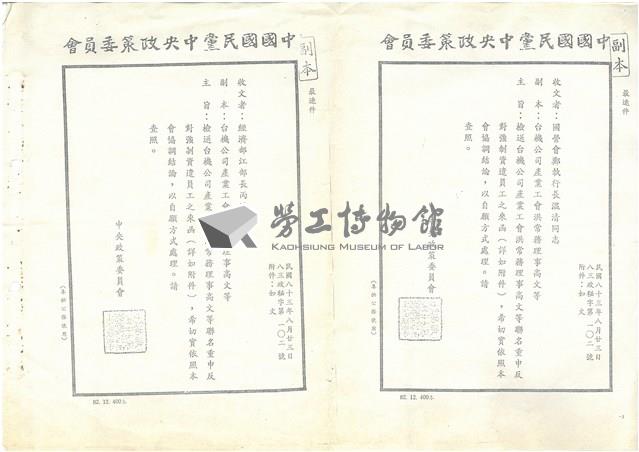 中國國民黨中央政策委員會
副本
最速件
收文者：國營會鄭執行長溫清同志
副本：台機公司產業工會洪常務理事高文等
主旨：檢送台機公司產業工會洪常務理事高文等聯名重申反
對強制資遣員工之來函（詳如附件），希切實依照本
會協調結論，以自願方式處理。請
查照。
政策委員會
民國八十三年八月廿三日
八三政秘字第一〇二號
附件：如文
（本件公務使用）
82. 12. 400本
中國國民黨中央政策委員會
副本
最速件
收文者：經濟部江部長丙
副本：台機公司產業工會
理事高文等
主旨：檢送台機公司產業
務理事高文等聯名重申反
對強制資遣員工之來函（詳如附件），希切實依照本
會協調結論，以自願方式處理。請
查照。
中央政策委員會
民國八十三年八月廿三日
八三政秘字第一〇二號
附件：如文
（本件公務使用）
82. 12. 400本
勞工博物館
KAOHSIUNG MUSEUM OF LABOR